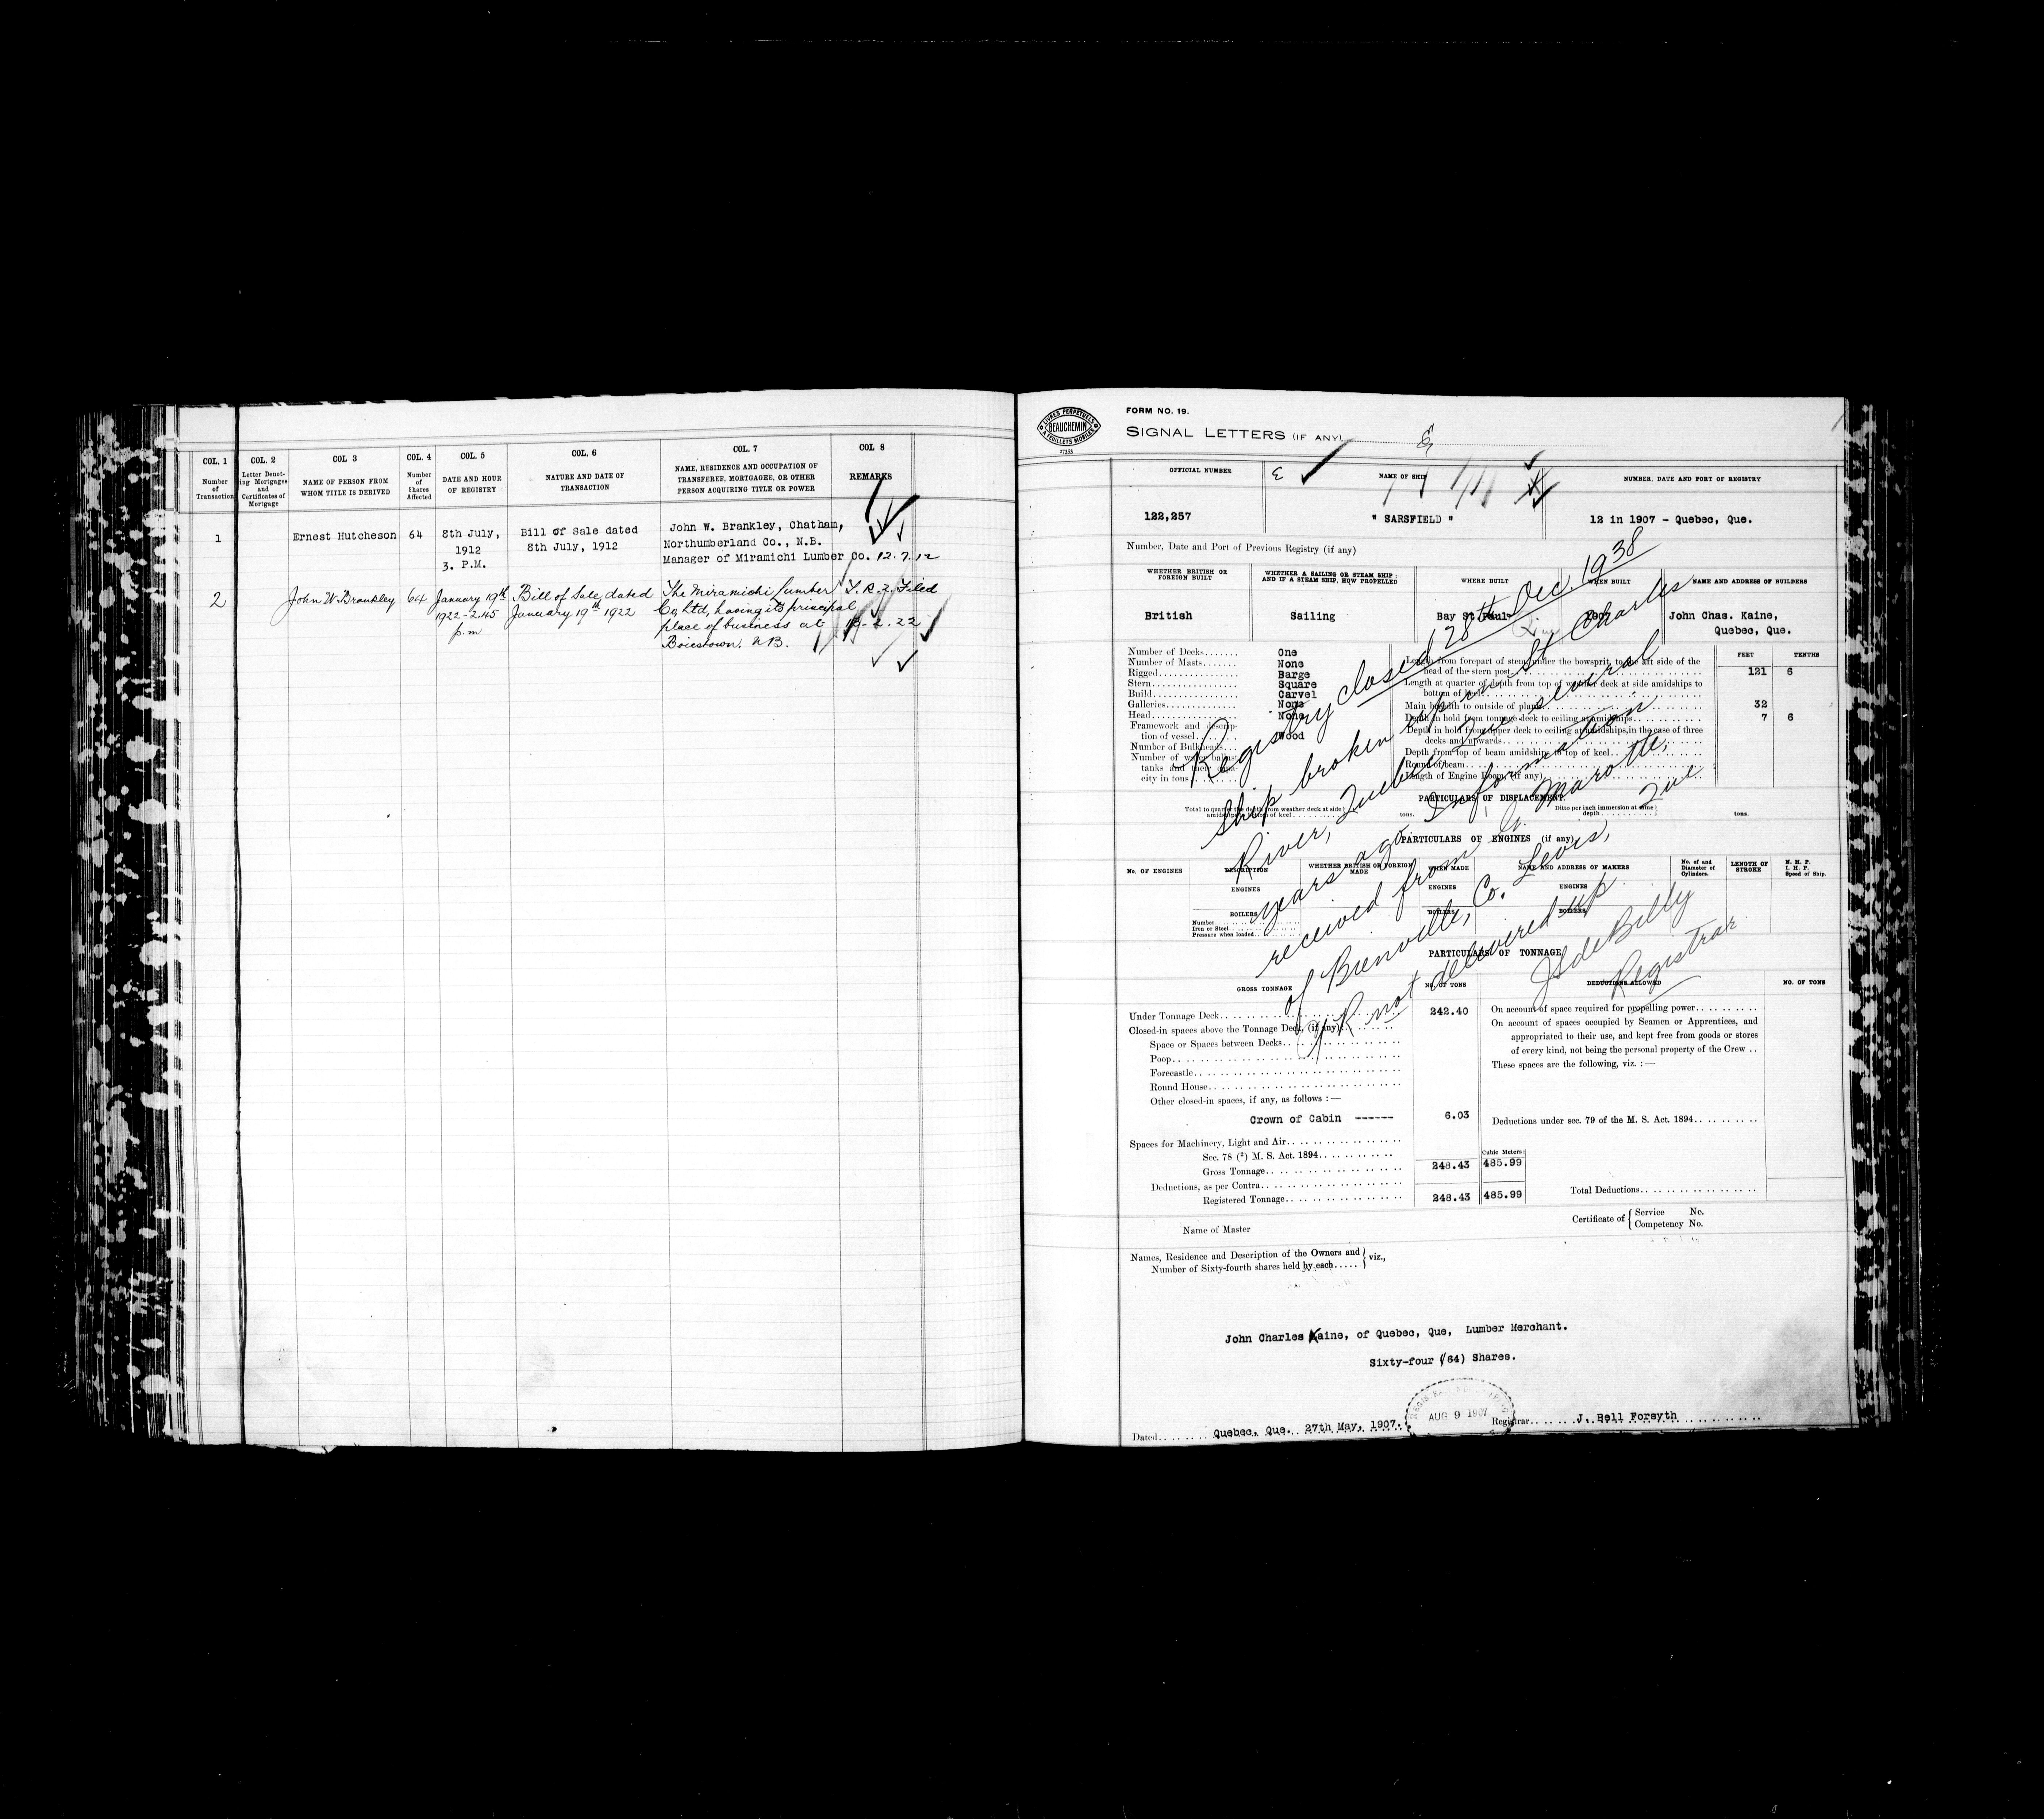 COL. 1
Number
of
Transaction
COL. 2
Letter Denot-
ing Mortgages
and
Certificates of
Mortgage
COL 3
NAME OF PERSON FROM
WHOM TITLE IS DERIVED
COL. 4
Number
of
Shares
Affected
COL. 5
DATE AND HOUR
OF REGISTRY
COL. 6
NATURE AND DATE OF
TRANSACTION
COL. 7
NAME, RESIDENCE AND OCCUPATION OF
TRANSFEREE, MORTGAGEE, OR OTHER
PERSON ACQUIRING TITLE OR POWER
COL 8
REMARKS
1
Ernest Hutcheson
64
8th July,
1912
3. P.M.
Bill of Sale dated
8th July, 1912
John W. Brankley, Chatham,
Northumberland Co., N.B.
Manager of Miramichi Lumber Co. 12.7.12
2
John W. Brankley
64
January 19th
1922 - 2.45
p.m
Bill of Sale, dated
January 19th 1922
The Miramichi Lumber
Co, Ltd, having its principal
place of business at
Boiestown, N.B.
Filed
2.22
LIVRES PERPETUELS
BEAUCHEMIN
A FEUILLETS MOBILES
27353
FORM NO. 19.
SIGNAL LETTERS (IF ANY)
OFFICIAL NUMBER
NAME OF SHIP
NUMBER, DATE AND PORT OF REGISTRY
122,257
" SARSFIELD "
12 in 1907 - Quebec, Que.
Number, Date and Port of Previous Registry (if any)
WHETHER BRITISH OR
FOREIGN BUILT
WHETHER A SAILING OR STEAM SHIP :
AND IF A STEAM SHIP, HOW PROPELLED
WHERE BUILT
WHEN BUILT
NAME AND ADDRESS OF BUILDERS
British
Sailing
Bay St. Paul
Que
1907
John Chas. Kaine,
Quebec, Que.
Number of Decks One
Number of Masts None
Rigged Barge
Stern Square
Build Carvel
Galleries None
Head None
Framework and descrip-
tion of vessel Wood
Number of Bulkheads
Number of water ballast
tanks and their capa-
city in tons
FEET TENTHS
Length from forepart of stem, under the bowsprit, to the aft side of the
head of the stern post 121 6
Length at quarter of depth from top of weather deck at side amidships to
bottom of keel
Main breadth to outside of plank 32
Depth in hold from tonnage deck to ceiling at amidships 7 6
Depth in hold from upper deck to ceiling at amidships, in the case of three
decks and upwards
Depth from top of beam amidships to top of keel
Round of beam
Length of Engine Room (if any)
Registry closed 28th Dec. 1938
Ship broken up in St Charles
River, Quebec, Que several
years ago. Information
received from G. Marotte,
of Bienville, Co. Levis, Que
C of R not delivered up
JS de Billy
Registrar
PARTICULARS OF DISPLACEMENT.
Total to quarter the depth from weather deck at side
amidships to bottom of keel tons.
Ditto per inch immersion at same
depth tons.
PARTICULARS OF ENGINES (if any)
No. OF ENGINES
DESCRIPTION
WHETHER BRITISH OR FOREIGN
MADE
WHEN MADE
NAME AND ADDRESS OF MAKERS
No. of and
Diameter of
Cylinders.
LENGTH OF
STROKE
N. H. P.
I. H. P.
Speed of Ship.
ENGINES
ENGINES
ENGINES
BOILERS
BOILERS
BOILERS
Number
Iron or Steel
Pressure when loaded
PARTICULARS OF TONNAGE
GROSS TONNAGE
NO. OF TONS
DEDUCTIONS ALLOWED
NO. OF TONS
Under Tonnage Deck 242.40
Closed-in spaces above the Tonnage Deck, (if any)
Space or Spaces between Decks
Poop
Forecastle
Round House
Other closed-in spaces, if any, as follows : —
Crown of Cabin ------ 6.03
Spaces for Machinery, Light and Air
Sec. 78 (²) M. S. Act. 1894
Cubic Meters
Gross Tonnage 248.43 485.99
Deductions, as per Contra
Registered Tonnage 248.43 485.99
On account of space required for propelling power
On account of spaces occupied by Seamen or Apprentices, and
appropriated to their use, and kept free from goods or stores
of every kind, not being the personal property of the Crew
These spaces are the following, viz. : —
Deductions under sec. 79 of the M. S. Act. 1894
Total Deductions
Name of Master
Certificate of { Service No.
Competency No.
Names, Residence and Description of the Owners and
Number of Sixty-fourth shares held by each } viz.,
John Charles Kaine, of Quebec, Que, Lumber Merchant.
Sixty-four (64) Shares.
AUG 9 1907
Dated Quebec, Que. 27th May, 1907.
Registrar J. Bell Forsyth